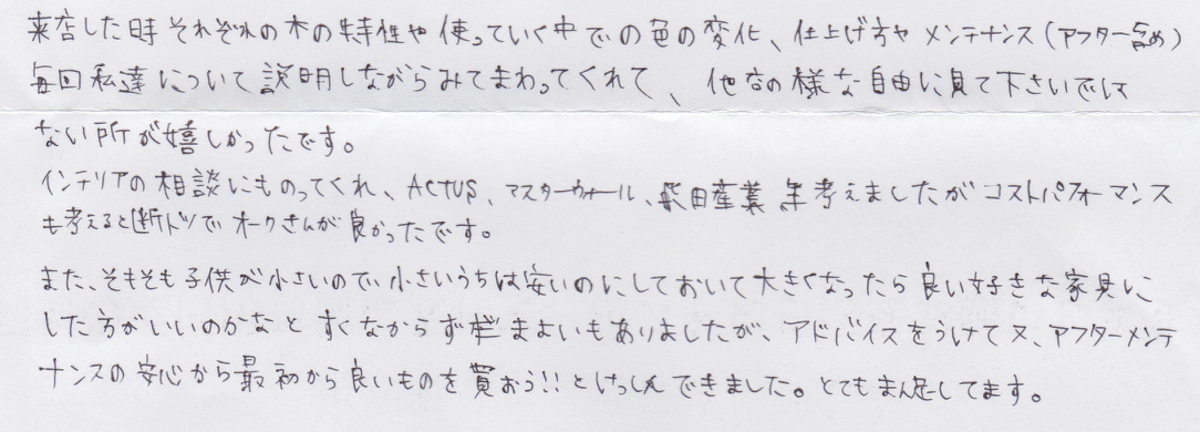 来店した時それぞれの木の特性や使っていく中での色の変化、仕上げ方やメンテナンス(アフター含め)
毎回私達について説明しながらみてまわってくれて、他店の様な自由に見て下さいでは
ない所が嬉しかったです。
インテリアの相談にものってくれ、ACTUS、マスターウォール、柴田産業 考えましたがコストパフォーマンス
も考えると断トツでオークさんが良かったです。
また、そもそも子供が小さいので、小さいうちは安いのにしておいて大きくなったら良い好きな家具に
した方がいいのかなと すくなからず まよいもありましたが、アドバイスをうけて又、アフターメンテ
ナンスの安心から最初から良いものを買おう!!とけっしんできました。とてもまん足してます。